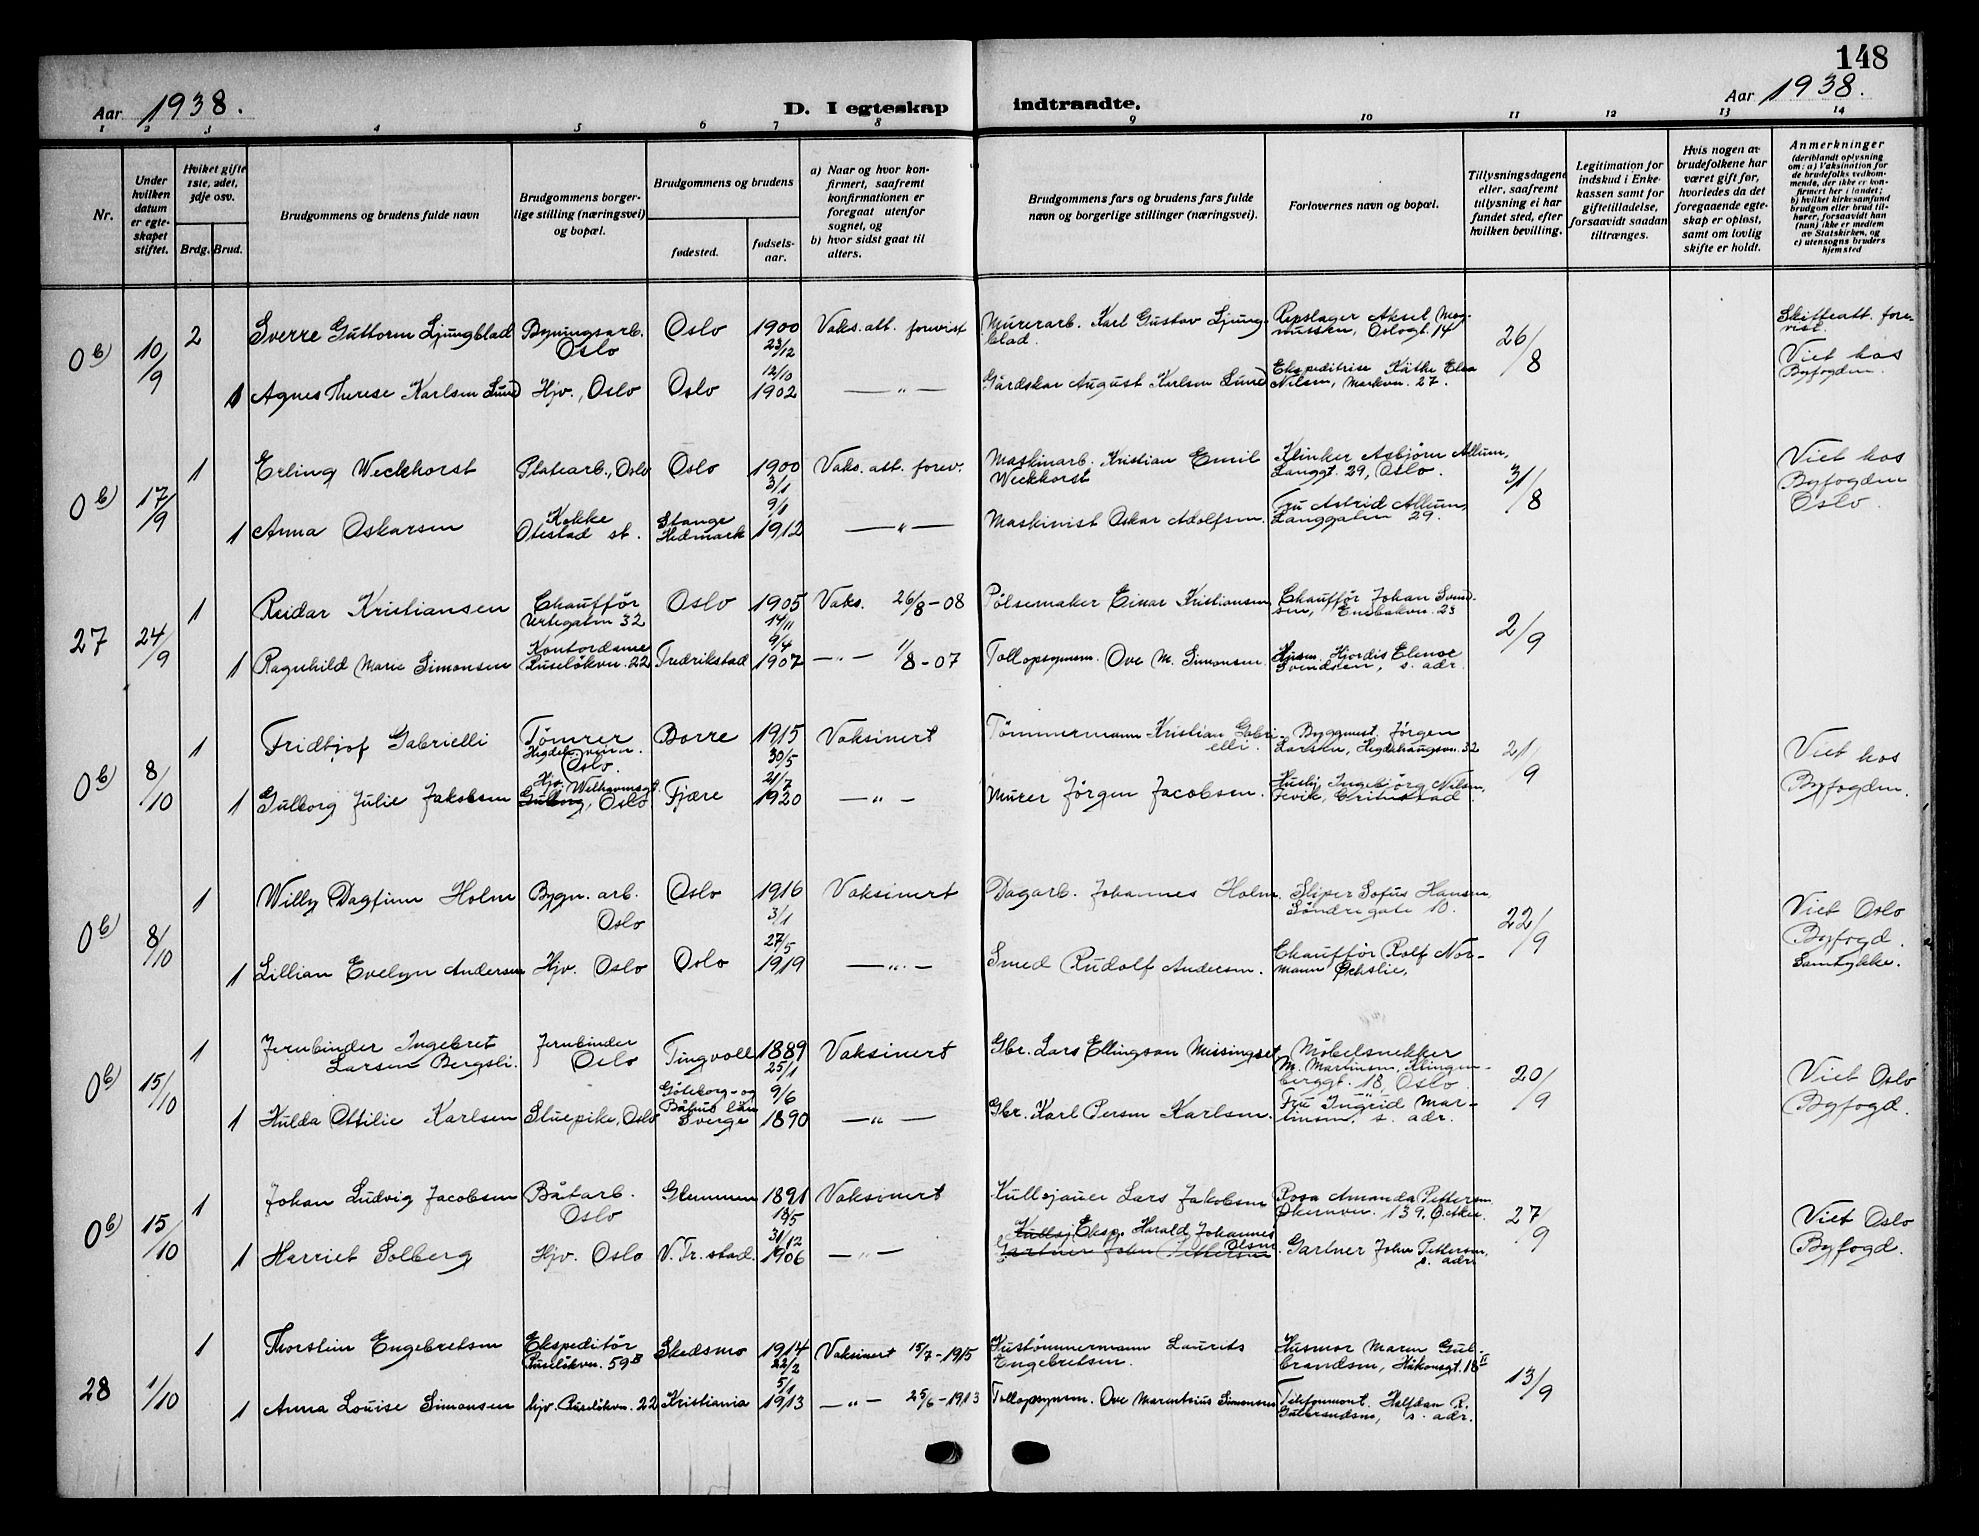 148
Aar 1938.
D. I egteskap indtraadte.
Aar 1938.
1 2 3 4 5 6 7 8 9 10 11 12 13 14
Nr.
Under
hvilken
datum
er egte-
skapet
stiftet.
Hvilket gifte
1ste, 2det,
3dje osv.
Brdg. Brud.
Brudgommens og brudens fulde navn
Brudgommens borger-
lige stilling (næringsvei)
og bopæl.
Brudgommens og brudens
fødested.
fødsels-
aar.
a) Naar og hvor kon-
firmert, saafremt
konfirmationen er
foregaat utenfor
sognet, og
b) hvor sidst gaat til
alters.
Brudgommens fars og brudens fars fulde
navn og borgerlige stillinger (næringsvei).
Forlovernes navn og bopæl.
Tillysningsdagene
eller, saafremt
tillysning ei har
fundet sted, efter
hvilken bevilling.
Legitimation for
indskud i Enke-
kassen samt for
giftetilladelse,
forsaavidt saadan
tiltrænges.
Hvis nogen av
brudefolkene har
været gift før,
hvorledes da det
foregaaende egte-
skap er opløst,
samt om lovlig
skifte er holdt.
Anmerkninger
(deriblandt oplysning
om: a) Vaksination for
de brudefolks vedkom-
mende, der ikke er kon-
firmert her i landet;
b) hvilket kirkesamfund
brudgom eller brud til-
hører, forsaavidt han
(hun) ikke er medlem
av Statskirken, og
c) utensogns bruders
hjemsted
0 b) 10/9 2 Sverre Guttorm Ljungblad
Bygningsarb.
Oslo
Oslo 1900
23/12
Vaks. att. forevist
Murerarb. Karl Gustav Ljung-
blad.
Repslager Aksel Mag-
nussen, Oslogt. 14
26/8
Skifteatt. fore-
vist.
Viet hos
Byfogden.
1 Agnes Therese Karlsen Lund
Hjv., Oslo Oslo
12/10
1902
— " —
Gårdskar August Karlsen Lund
Ekspeditrise Käthe Elsa
Nilsen, Markvn. 27.
0 b) 17/9 1 Erling Weckhorst
Platearb., Oslo Oslo 1900
3/1
Vaks. att. forev.
Maskinarb. Kristian Emil
Weckhorst
Klinker Asbjørn Allum,
Langgt. 29, Oslo.
31/8
Viet hos
Byfogden
Oslo.
1 Anna Oskarsen
Kokke
Otestad st.
Stange
Hedmark
9/1
1912
— " —
Maskinist Oskar Adolfsen.
Fru Astrid Allum,
Langgaten 29.
27 24/9 1 Reidar Kristiansen
Chauffør
Urtegaten 32
Oslo 1905
14/11
Vaks. 26/8-08
Pølsemaker Einar Kristiansen
Chauffør Johan Svend-
sen, Enebakvn. 23
2/9
1 Ragnhild Marie Simonsen
Kontordame
Ruseløkvn. 22
Fredrikstad
9/4
1907
— " — 1/8-07
Tollopsynsm. Ove M. Simonsen.
Hjsm. Hjordis Elenoe
Svendsen, s. adr.
0 b) 8/10 1 Fridtjof Gabrielli
Tømrer
Hegdeh.veien.
Oslo.
Borre 1915
30/5
Vaksinert
Tømmermann Kristian Gabri-
elli.
Byggmest. Jørgen
Larsen, Hegdehaugsvn. 32
21/9
Viet hos
Byfogden.
1 Gulborg Julie Jakobsen
Hjv. Welhavensgt.
Gulborg, Oslo
Fjære
21/7
1920
— " —
Murer Jørgen Jacobsen.
Husbj. Ingebjørg Nilsen,
Fevik, Grimstad
0 b) 8/10 1 Willy Dagfinn Holm
Bygn. arb.
Oslo
Oslo 1916
3/1
Vaksinert
Dagarb. Johannes Holm.
Sliper Sofus Hansen,
Søndre gate 10.
22/9
Viet Oslo
Byfogd.
Samtykke.
1 Lillian Evelyn Andersen
Hjv. Oslo Oslo
27/5
1919
— " —
Smed Rudolf Andersen.
Chauffør Rolf Nor-
mann Echslie,
0 b) 15/10 1 Jernbinder Ingebret
Larsen Bergsli.
Jernbinder
Oslo
Tingvoll 1889
25/1
Vaksinert
Gbr. Lars Ellingson Meisingset
Møbelsnekker
M. Martinsen, Klingen-
berggt. 18, Oslo
20/9
Viet Oslo
Byfogd.
1 Hulda Ottilie Karlsen
Stuepike, Oslo
Göteborg- og
Båhus län
Sverge
9/6
1890
— " —
Gbr. Karl Person Karlsen.
Fru Ingrid Mar-
tinsen, s. adr.
0 b) 15/10 1 Johan Ludvig Jacobsen
Båtarb.
Oslo
Glemmen 1891
18/5
Vaksinert
Kullsjauer Lars Jakobsen
Rosa Amanda Pettersen
Økernvn. 139, Ø. Aker.
27/9
Viet Oslo
Byfogd.
1 Harriet Solberg
Hjv. Oslo V. Fr. stad.
31/12
1906
— " —
Kullsj. Eksp. Harald Johannes
Olsen
Gartner John Pettersen.
Gartner John Pettersen,
s. adr.
28 1/10 1 Thorstein Engebretsen
Ekspeditør
Ruseløkvn. 59B
Skedsmo 1914
22/2
Vaksinert 15/7-1915
Hustømmermann Laurits
Engebretsen.
Husmor Maren Gul-
brandsen, Håkonsgt. 18 II
13/9
1 Anna Louise Simonsen
hjv. Ruseløkvn. 22 Kristiania
5/1
1913
— " — 25/6-1913
Tollopsynsm. Ove Marentsius Simonsen
Telefonmont. Halfdan R.
Gulbrandsen, s. adr.